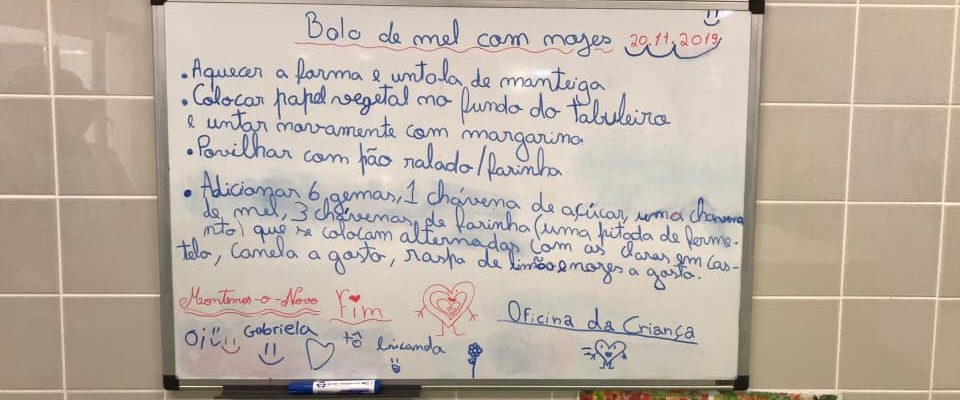 Bolo de mel com nozes 20.11.2019
• Aquecer a forma e untá-la de manteiga
• Colocar papel vegetal no fundo do tabuleiro
e untar novamente com margarina
• Povilhar com pão ralado/farinha
• Adicionar 6 gemas, 1 chávena de açúcar, uma chávena
de mel, 3 chávenas de farinha (uma pitada de ferme-
nto) que se colocam alternadas com as claras em cas-
telo, canela a gosto, raspa de limão e nozes a gosto.
Montemor-o-Novo Fim
Oficina da Criança
Oi Gabriela tô brincanda